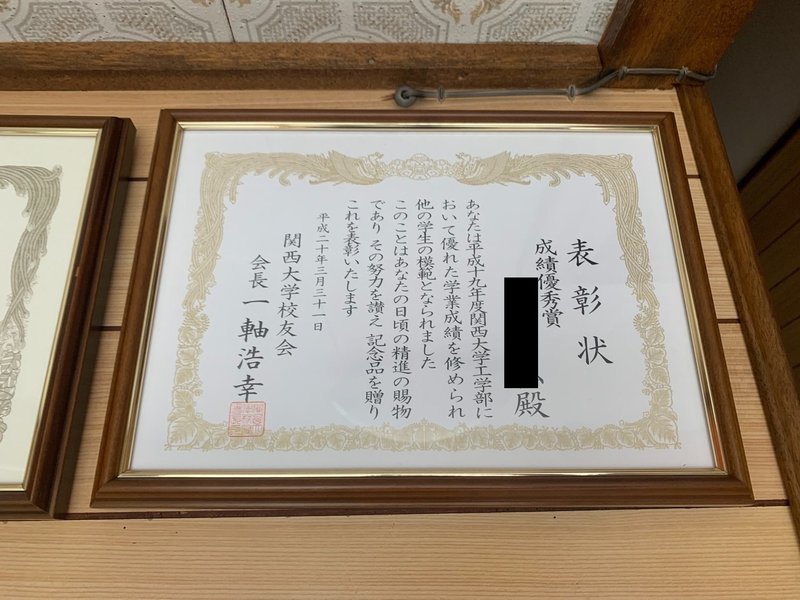 表彰状
成績優秀賞
殿
あなたは平成十九年度関西大学工学部に
おいて優れた学業成績を修められ
他の学生の模範となられました
このことはあなたの日頃の精進の賜物
であり その努力を讃え 記念品を贈り
これを表彰いたします
平成二十年三月三十一日
関西大学校友会
会長 一軸浩幸